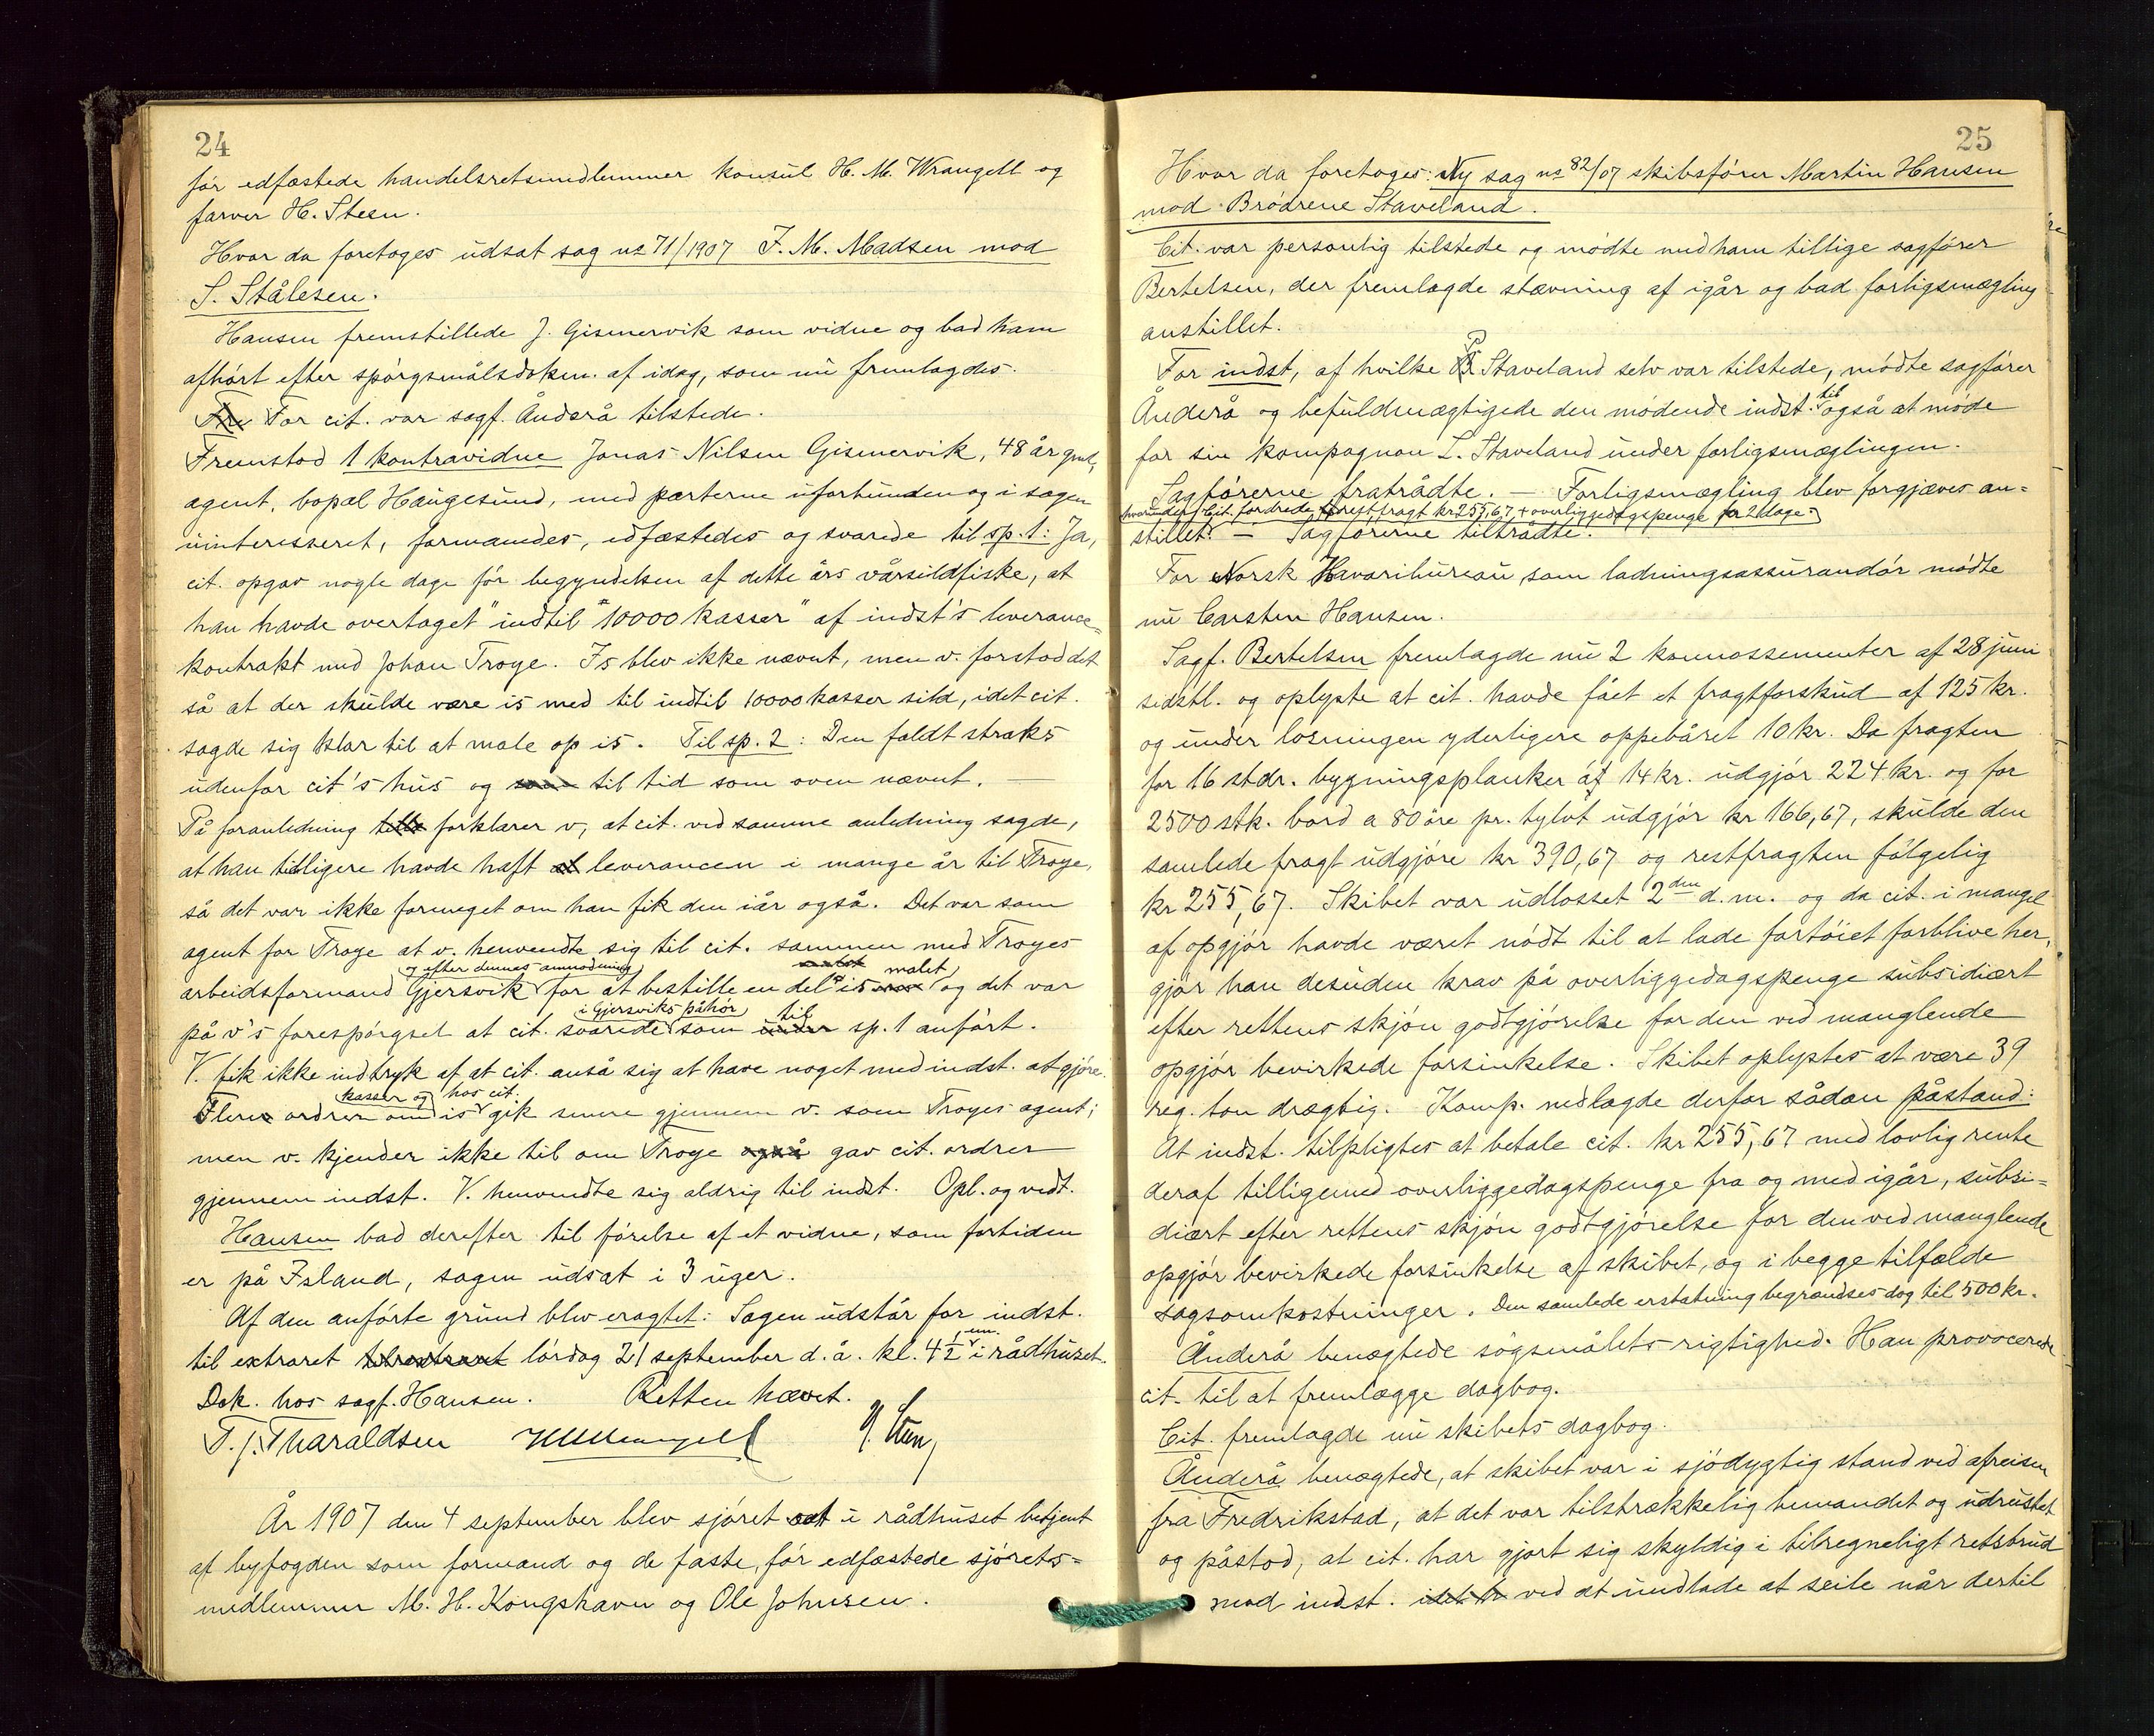 24
før edfæstede handelsretsmedlemmer konsul H. M. Wrangell og
farver H. Steen.
Hvor da foretoges udsat sag no 71/1907 J. M. Madsen mod
S. Stålesen.
Hansen fremstillede J. Gismervik som vidne og bad ham
afhørt efter spørgsmålsdokum. af idag, som nu fremlagdes.
For cit. var sagf. Ånderå tilstede.
Fremstod 1 kontravidne Jonas Nilsen Gismervik, 48 år gml,
agent, bopæl Haugesund, med parterne uforbunden og i sagen
uinteresseret, formanedes, edfæstedes og svarede til sp. 1: Ja,
cit. opgav nogle dage før begyndelsen af dette års vårsildfiske, at
han havde overtaget "indtil "10000 kasser" af indst's leverance=
kontrakt med Johan Troye. Is blev ikke nævnt, men v. forstod det
så at der skulde være is med til indtil 10000 kasser sild, idet cit.
sagde sig klar til at male op is. Til sp. 2: Den faldt straks
udenfor cit's hus og til tid som oven nævnt. —
På foranledning forklarer v, at cit. ved samme anledning sagde,
at han tidligere havde haft leverancen i mange år til Troye,
så det var ikke formeget om han fik den iår også. Det var som
agent for Troye at v. henvendte sig til cit. sammen med Troyes
og efter dennes anmodning malet
arbeidsformand Gjersvik for at bestille en del is og det var
i Gjersviks påhør til
på v's forespørgsel at cit. svarede som under sp. 1 anført.
V. fik ikke indtryk af at cit. anså sig at have noget med indst. at gjøre.
kasser og hos cit.
Flere ordrer om is gik senere gjennem v. som Troyes agent;
men v. kjender ikke til om Troye også gav cit. ordrer
gjennem indst. V. henvendte sig aldrig til indst. Opl. og vedt.
Hansen bad derefter til førelse af et vidne, som fortiden
er på Island, sagen udsat i 3 uger.
Af den anførte grund blev eragtet: Sagen udstår for indst.
em.
til extraret lørdag 21 september d. å. kl. 4 1/2 i rådhuset.
Dok. hos sagf. Hansen. Retten hævet.
T. J. Tharaldsen HMWrangell H. Steen
År 1907 den 4 september blev sjøret sat i rådhuset betjent
af byfogden som formand og de faste, før edfæstede sjørets=
medlemmer M. H. Kongshavn og Ole Johnsen.
25
Hvor da foretoges: Ny sag no 82/07 skibsfører Martin Hansen
mod Brødrene Staveland.
Cit. var personlig tilstede og mødte med ham tillige sagfører
Bertelsen, der fremlagde stævning af igår og bad forligsmægling
anstillet.
P
For indst, af hvilke Staveland selv var tilstede, mødte sagfører
til
Ånderå og befuldmægtigede den mødende indst. også at møde
for sin kompagnon L. Staveland under forligsmæglingen.
Sagførerne fratrådte. — Forligsmægling blev forgjæves an=
hvorunder Cit. fordrede restfragt kr 255,67 + overliggedagspenge for 2 dage
stillet. — Sagførerne tiltrådte.
For Norsk Havaribureau som ladningsassurandør mødte
nu Carsten Hansen.
Sagf. Bertelsen fremlagde nu 2 konnossementer af 28 juni
sidstl. og oplyste at cit. havde fået et fragtforskud af 125 kr.
og under losningen yderligere oppebåret 10 kr. Da fragten
for 16 stdr. bygningsplanker á 14 kr. udgjør 224 kr. og for
2500 stk. bord a 80 øre pr. tylvt udgjør kr 166,67, skulde den
samlede fragt udgjøre kr 390,67 og restfragten følgelig
kr 255,67. Skibet var udlosset 2den d. m. og da cit. i mangel
af opgjør havde været nødt til at lade fartøiet forblive her,
gjør han desuden krav på overliggedagspenge subsidiært
efter rettens skjøn godtgjørelse for den ved manglende
opgjør bevirkede forsinkelse. Skibet oplystes at være 39
reg. ton drægtig. Komp. nedlagde derfor sådan påstand:
At indst. tilpligtes at betale cit. kr 255,67 med lovlig rente
deraf tilligemed overliggedagspenge fra og med igår, subsi=
diært efter rettens skjøn godtgjørelse for den ved manglende
opgjør bevirkede forsinkelse af skibet, og i begge tilfælde
sagsomkostninger. Den samlede erstatning begrændses dog til 500 kr.
Ånderå benægtede søgsmålets rigtighed. Han provocerede
cit. til at fremlægge dagbog.
Cit. fremlagde nu skibets dagbog.
Ånderå benægtede, at skibet var i sjødygtig stand ved afreisen
fra Fredrikstad, at det var tilstrækkelig bemandet og udrustet
og påstod, at cit. har gjort sig skyldig i tilregneligt retsbrud
mod indst. ved at undlade at seile når dertil